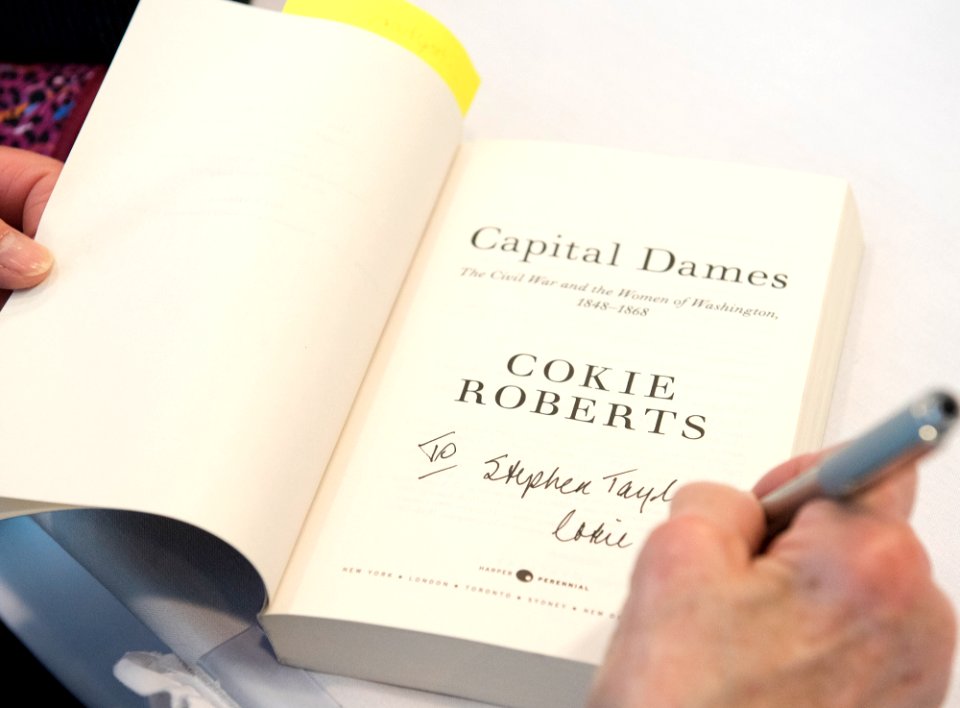 Capital Dames
The Civil War and the Women of Washington,
1848–1868
COKIE
ROBERTS
To Stephen
Cokie
HARPER PERENNIAL
NEW YORK • LONDON • TORONTO • SYDNEY • NEW